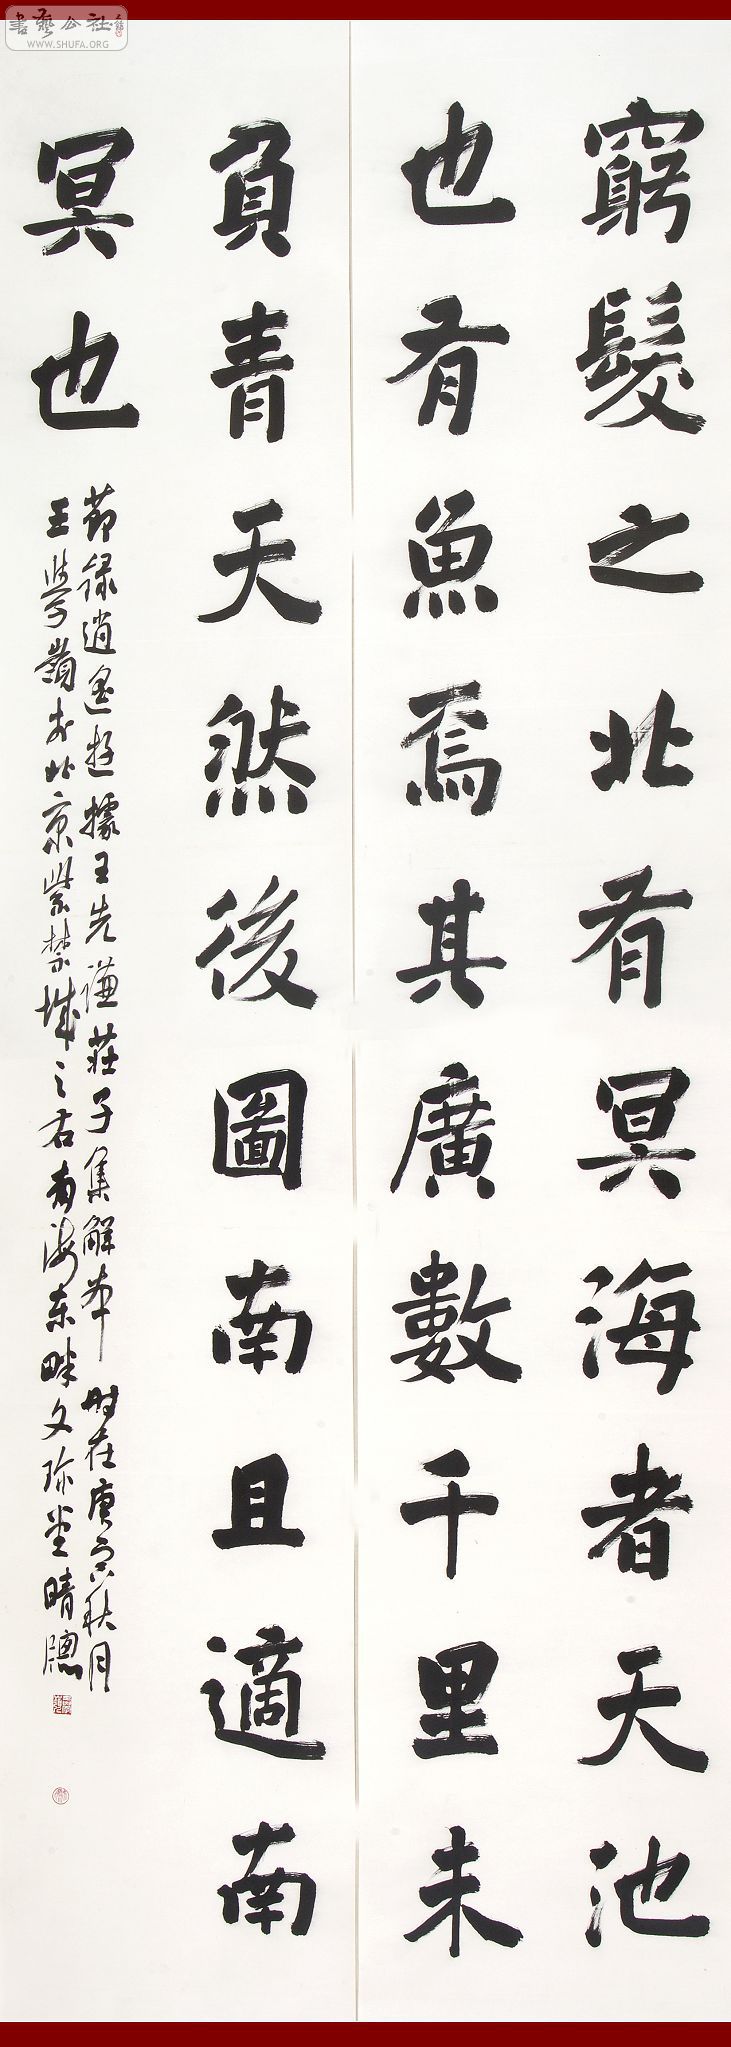 窮髮之北有冥海者天池
也有魚焉其廣數千里未
負青天然後圖南且適南
冥也
節錄逍遙遊據王先謙莊子集解本 時在庚寅秋月
王學嶺於北京紫禁城之右南海東畔文珍堂晴窗
書藝公社
WWW.SHUFA.ORG